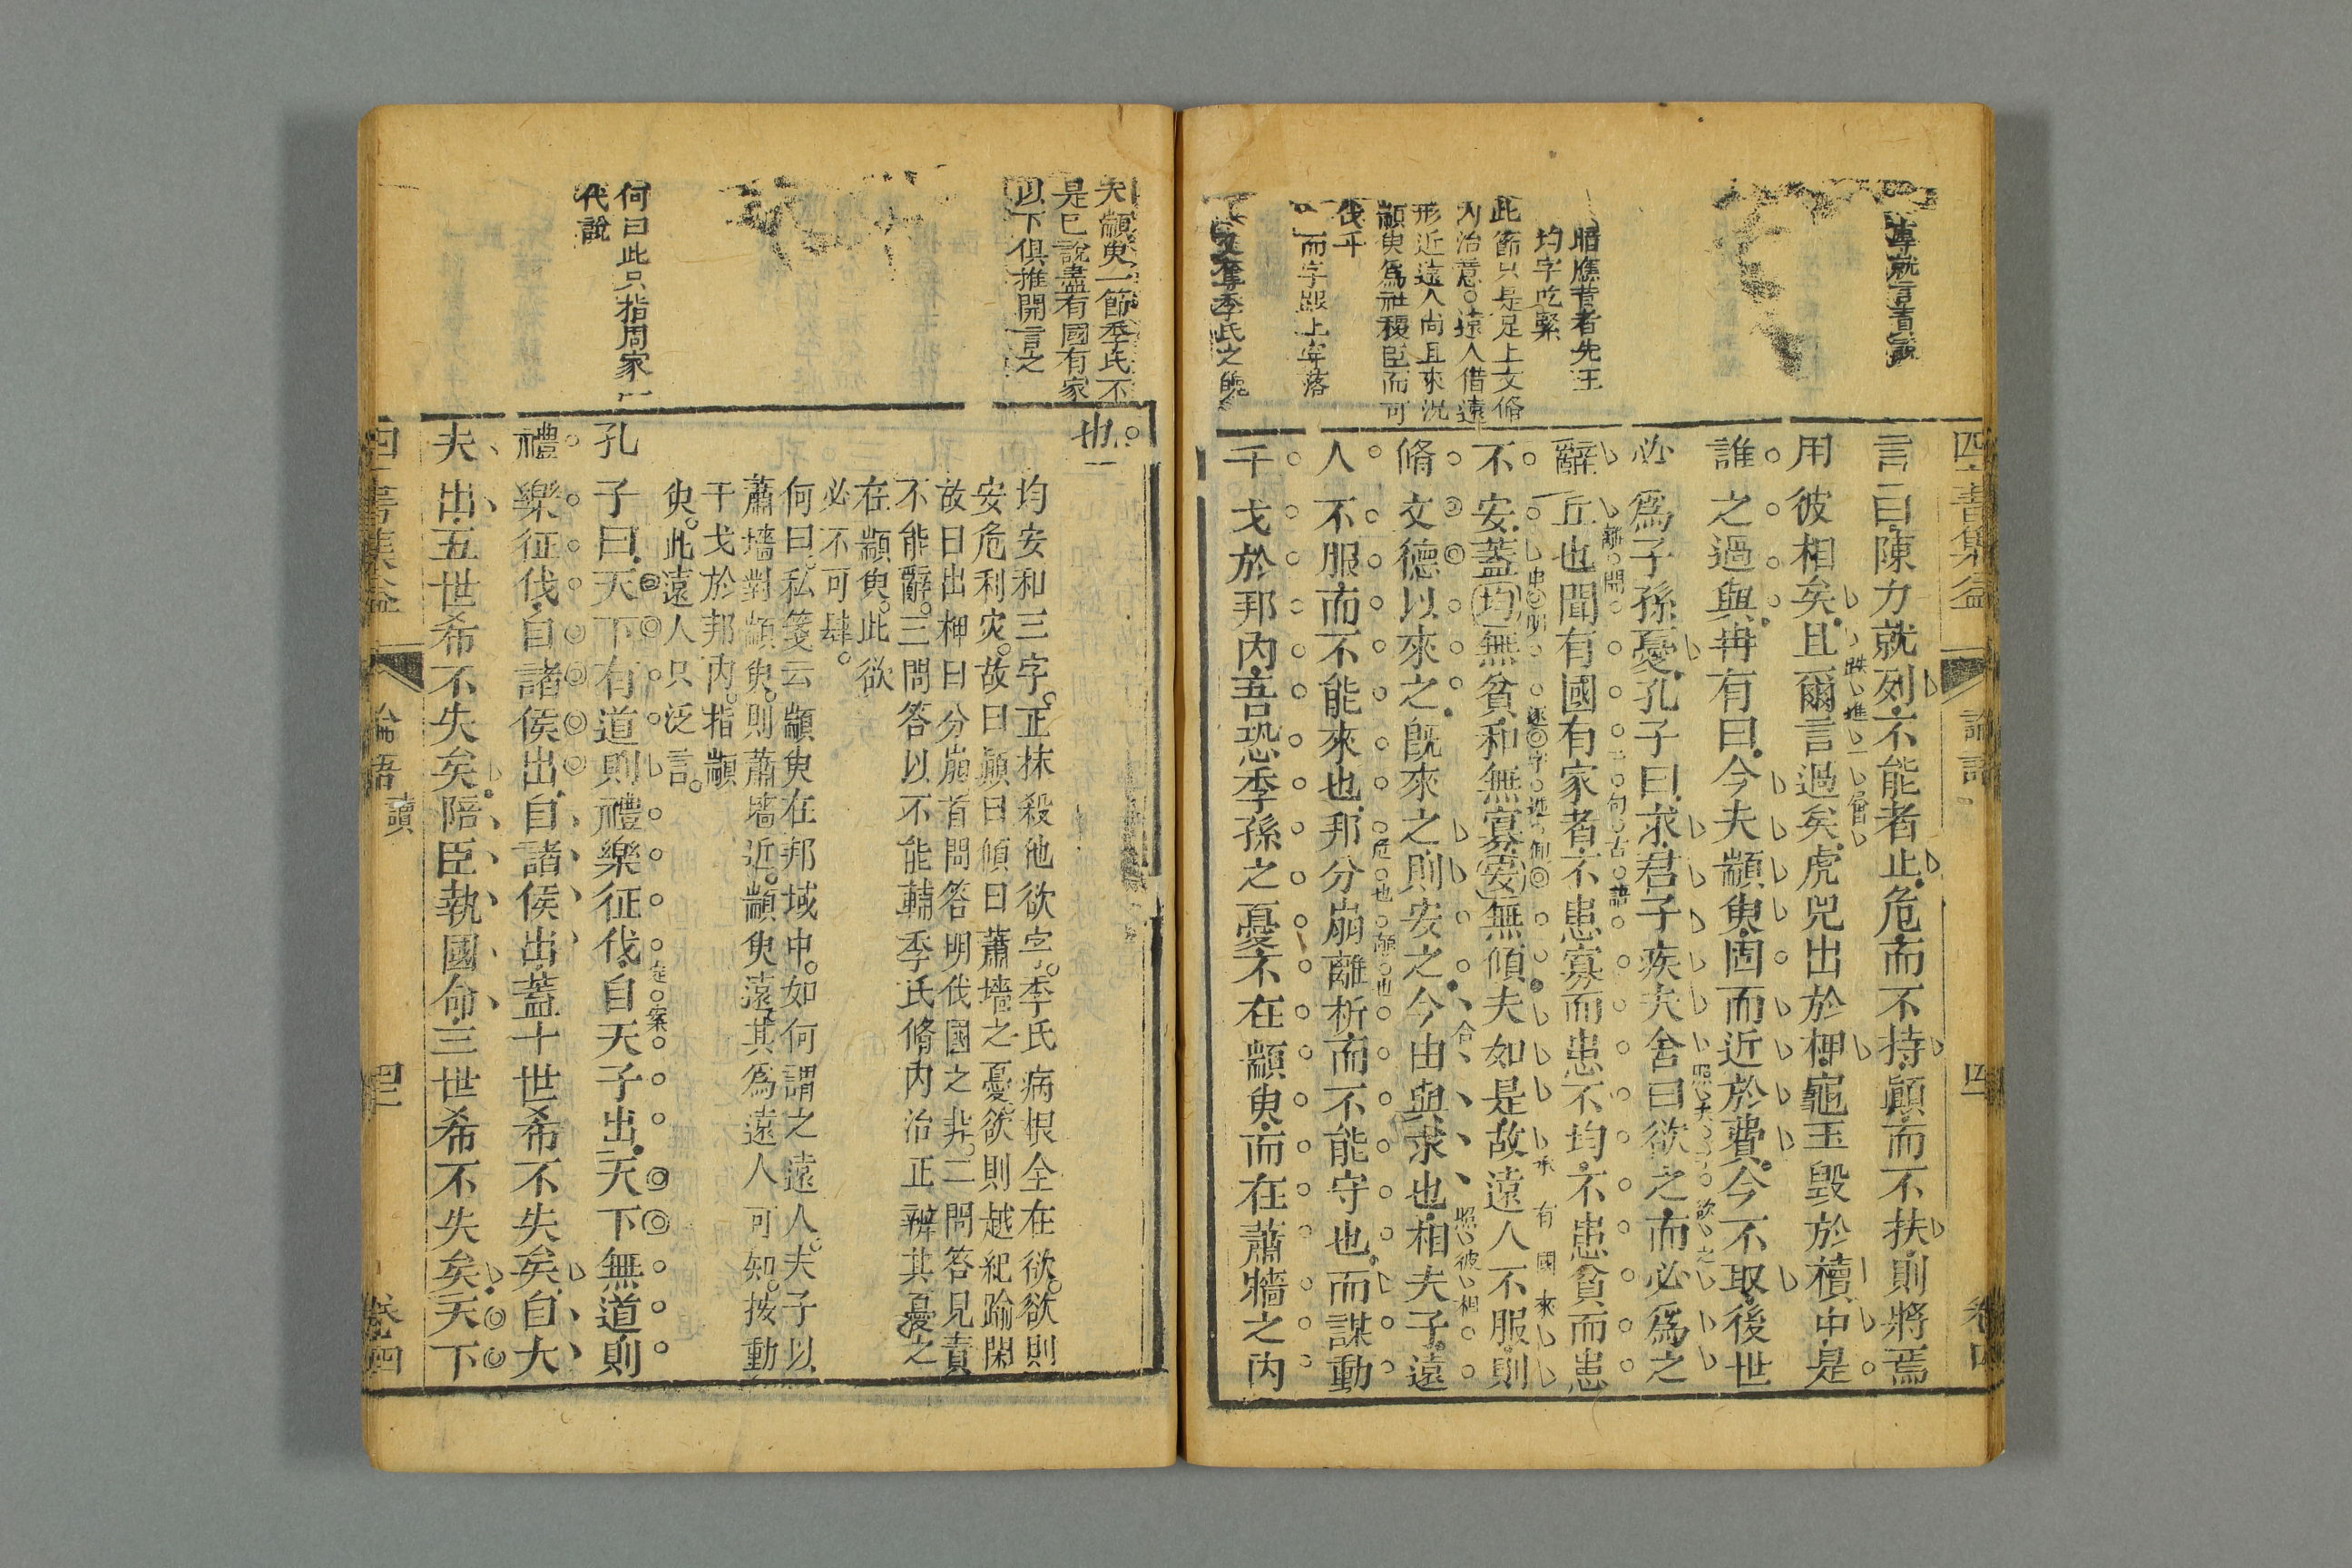 四書集益
論語
四
卷四
專就言責說
言曰陳力就列不能者止危而不持顚而不扶則將焉
用彼相矣且爾言過矣虎兕出於柙龜玉毀於櫝中是
跌 進 一 層
誰之過與冉有曰今夫顓臾固而近於費今不取後世
必爲子孫憂孔子曰求君子疾夫舍曰欲之而必爲之
照 夫子 欲之
暗應昔者先王
均字吃緊
此節只是足上文脩
內治意遠人借遠
形近遠人尚且來況
顓臾爲社稷臣而可
伐乎
而字跟上串落
季氏之魄
辭丘也聞有國有家者不患寡而患不均不患貧而患
辭 開
二句古語
不安蓋均無貧和無寡安無傾夫如是故遠人不服則
申明
承有國來
脩文德以來之旣來之則安之今由與求也相夫子遠
合
照彼相
人不服而不能來也邦分崩離析而不能守也而謀動
危也 顚也
干戈於邦內吾恐季孫之憂不在顓臾而在蕭牆之內
夫顓臾一節季氏不
是已說盡有國有家
以下俱推開言之
也
均安和三字正抹殺他欲字季氏病根全在欲欲則
安危利灾故曰顚曰傾曰蕭墻之憂欲則越紀踰閑
故曰出柙曰分崩首問答明伐國之非二問答見責
不能辭三問答以不能輔季氏脩內治正辨其憂之
在顓臾此欲
必不可肆
何曰私箋云顓臾在邦域中如何謂之遠人夫子以
蕭墻對顓臾則蕭墻近顓臾遠其爲遠人可知按動
干戈於邦內指顓
臾此遠人只泛言
何曰此只指周家一
代說
孔子曰天下有道則禮樂征伐自天子出天下無道則
定案
禮樂征伐自諸侯出自諸侯出蓋十世希不失矣自大
夫出五世希不失矣陪臣執國命三世希不失矣天下
四書集益
論語
讀
卷四